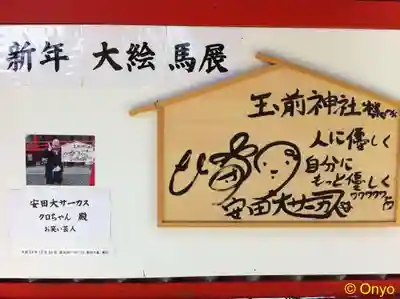 新年 大絵馬展
玉前神社
人に優しく
自分に
もっと優しく
ワワワワワ
安田大サーカス
安田大サーカス
クロちゃん 殿
お笑い芸人
© Onyo